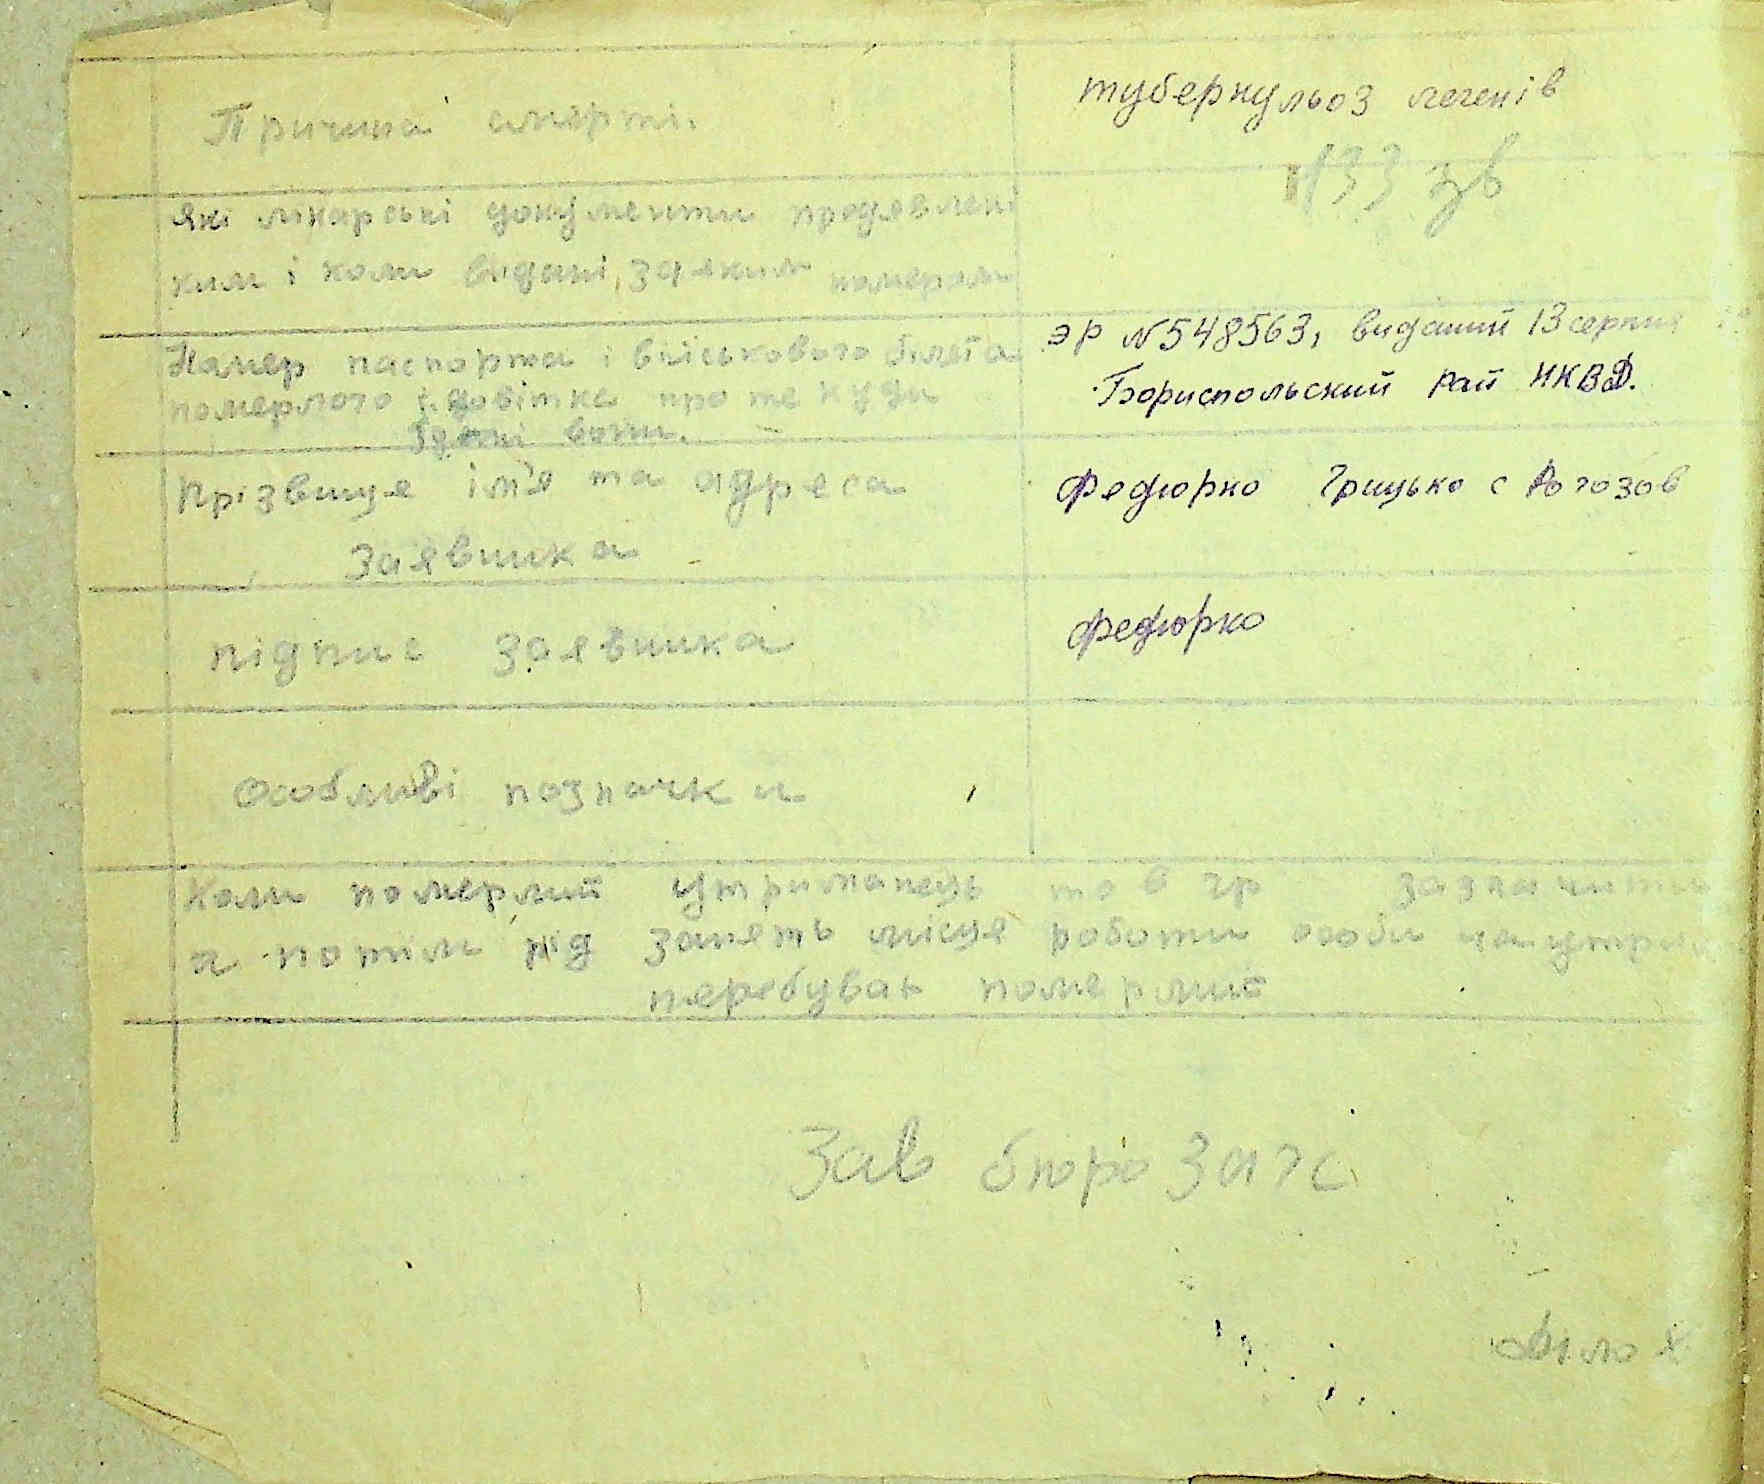 Причина смерти.
туберкульоз легенів
133 зв
які лікарські документи предявлені
ким і коли видані, за яким номером
Номер паспорта і військового білета
померлого і довітка про те куди
здані вони.
эр №548563, виданий 13 серпня
Бориспольский Рай НКВД.
Прізвище ім'я та адреса
заявника
Федюрко Грицько с Рогозов
підпис заявника
Федюрко
Особливі позначки
Коли померлий утриманець то в гр зазначити
а потім рід занять місце роботи особи на утрим
перебував померлий
Зав бюро Загс